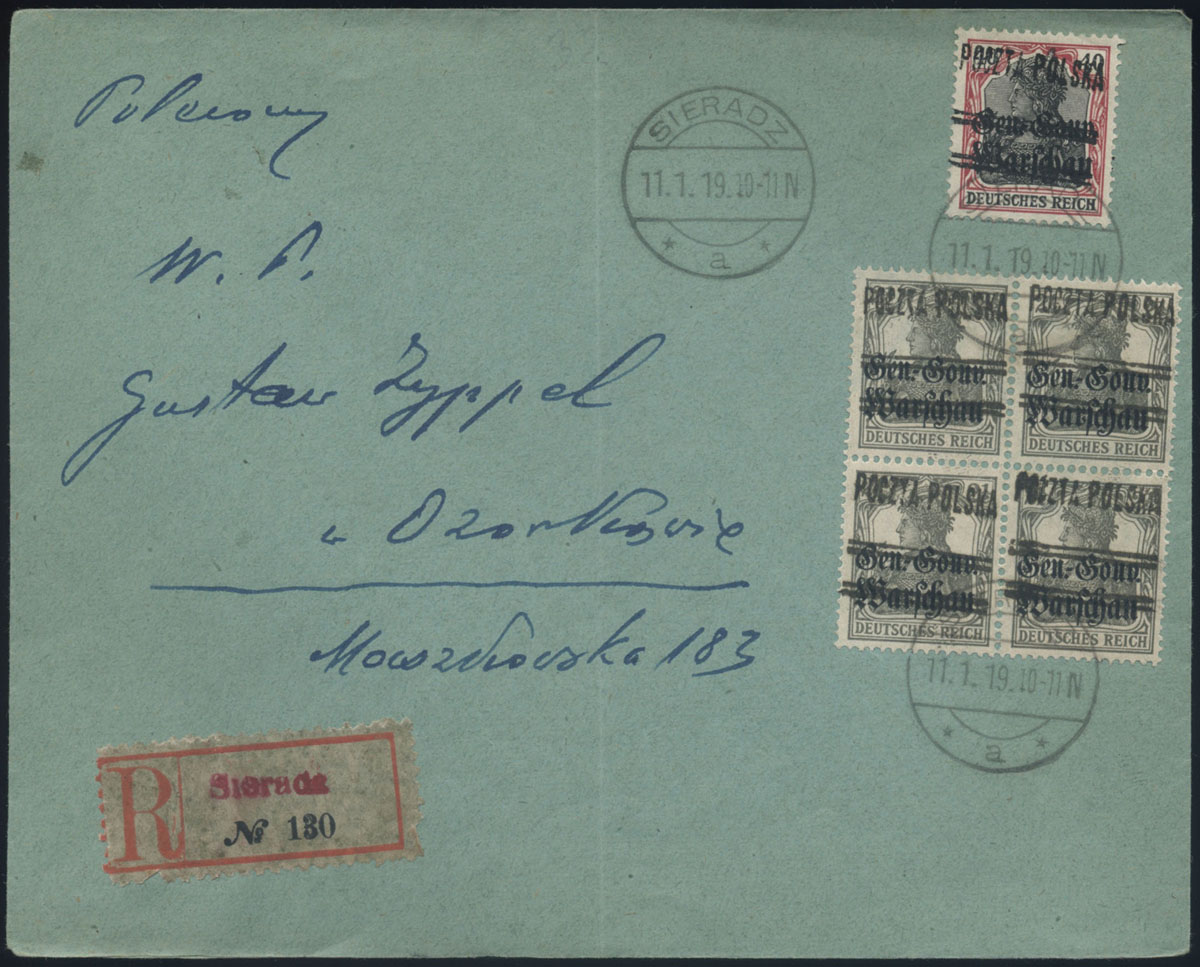 Polecony
W. P.
Gustaw Zyppel
w Ozorkowie
183
SIERADZ
11.1.19.10-11 N
a
40
POCZTA POLSKA
Gen.-Gouv.
Warschau
DEUTSCHES REICH
11.1.19.10-11 N
POCZTA POLSKA POCZTA POLSKA
Gen.-Gouv. Gen.-Gouv.
Warschau Warschau
DEUTSCHES REICH DEUTSCHES REICH
POCZTA POLSKA POCZTA POLSKA
Gen.-Gouv. Gen.-Gouv.
Warschau Warschau
DEUTSCHES REICH DEUTSCHES REICH
11.1.19.10-11 N
a
R
Sieradz
№ 130